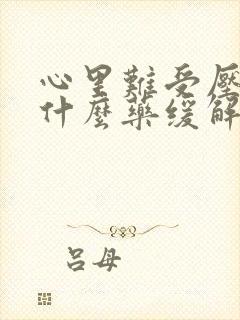 心里難受壓
什麼藥緩解
呂母